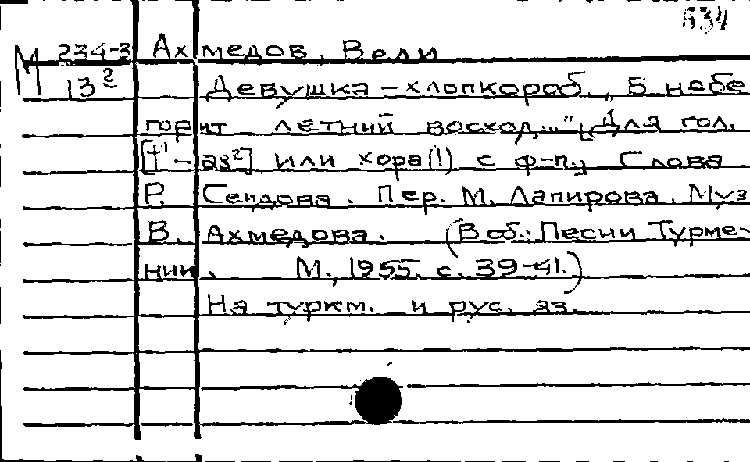 634
М 234-3 Ахмедов, Вели
13² Девушка-хлопкороб. „В небе
горит летний восход..." Для гол.
[f¹-as²] или хора(!) с ф-п., Слова
Р. Сеидова. Пер. М. Лапирова. Муз
В. Ахмедова. (В сб.: Песни Туркме-
нии. М., 1955. с. 39-41.)
На туркм. и рус. яз.